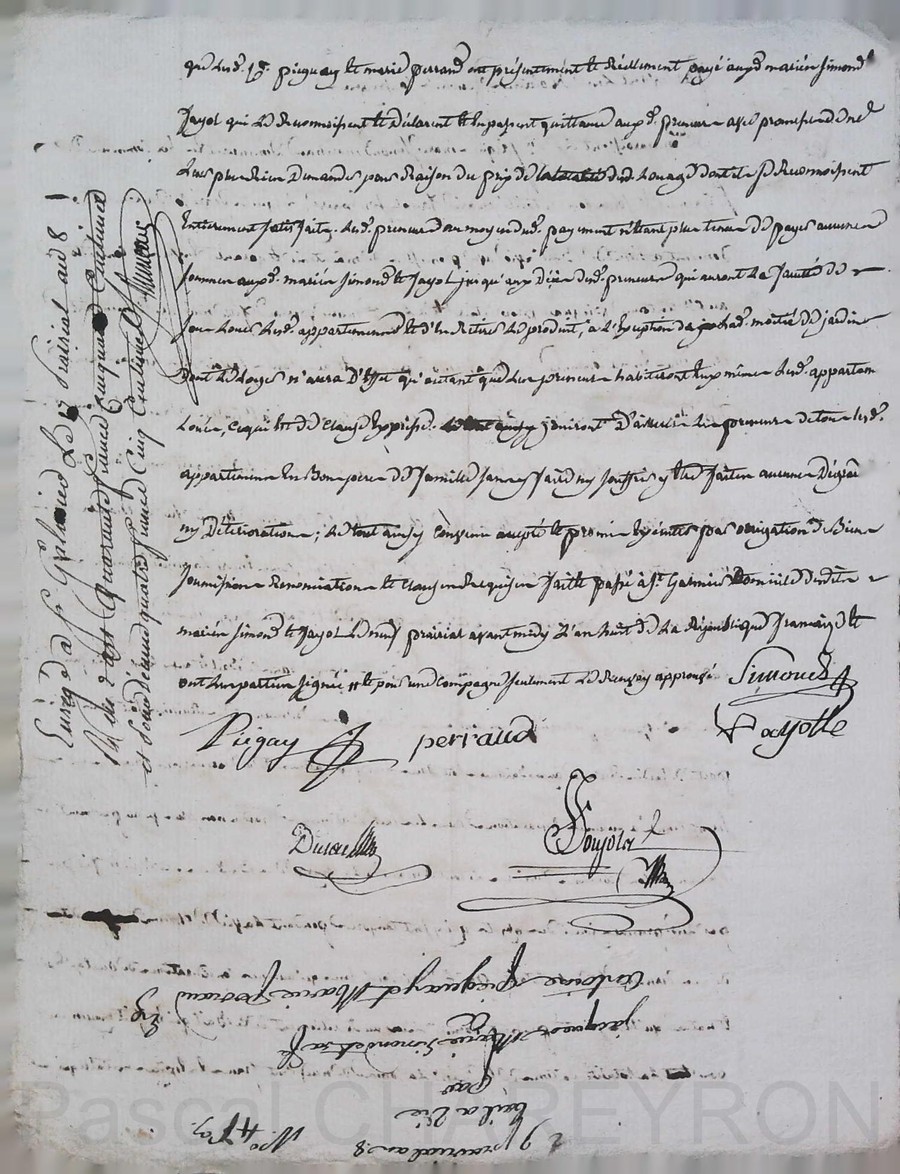 que lesd. picquay et marie perraud ont présentement et réellement payé auxd. mariés simond
fayol qui le reconnoissent et déclarent et en passent quittance auxd. preneurs avec promesse de ne
leur plus rien demander pour raison du prix de dud. Louage dont ils se reconnoissent
Entierement satisfaits. Lesd. preneurs au moyen dud. payement n'étant plus tenus de payer aucunes
sommes auxd. mariés simond et fayol jusqu'aux décès desd. preneurs qui auront la faculté de
sous Louer lesd. appartements et d'en retirer le produit, à l'exception de lad. moitié de jardin
dont le Louage n'aura d'effet qu'autant que les preneurs habiteront eux mêmes lesd. appartem.
Loués, ce qui est de clause expresse. jouiront les preneurs de tous lesd.
appartements en Bon pere de famille sans y faire ny souffrir y être faites aucunes dégrad.
ny Détériorations; le tout ainsy convenu accepté et promis exécuter par obligation de Biens
soumissions renonciations et clauses requises fait et passé à St. Galmier Domicile desdits
mariés simond et fayol le neuf prairial avant midy L'an huit de la République française et
ont les parties signé et pour une compagne seulement le approuvé Simond
Piegay perraud fayolle
Duraud
Ponjolat
Enreg. à St. Galmier Le 17 prairial an 8
quarante francs cinquante Centimes
et quatre francs Cinq Centimes
9 prairial an 8
bail a vie
Par
jacques Marie Simond et sa fe
a
antoine Picquay et Marie Perraud
Exp.
Pascal CHAPEYRON